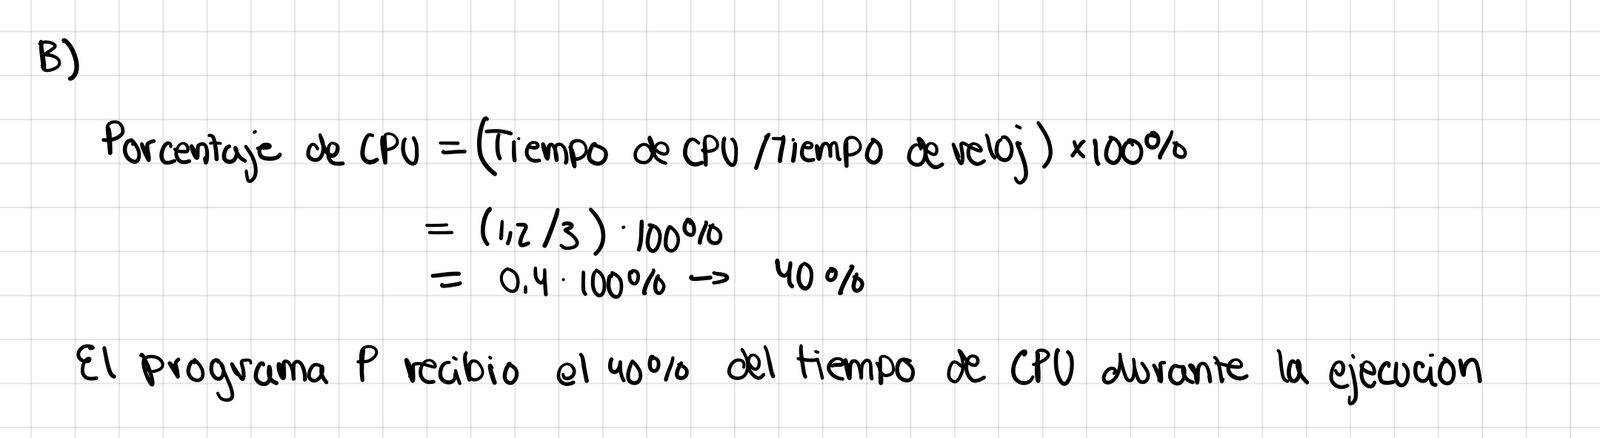 B)
Porcentaje de CPU = (Tiempo de CPU / Tiempo de reloj) × 100%
= (1,2 / 3) · 100%
= 0.4 · 100% → 40%
El programa P recibio el 40% del tiempo de CPU durante la ejecucion